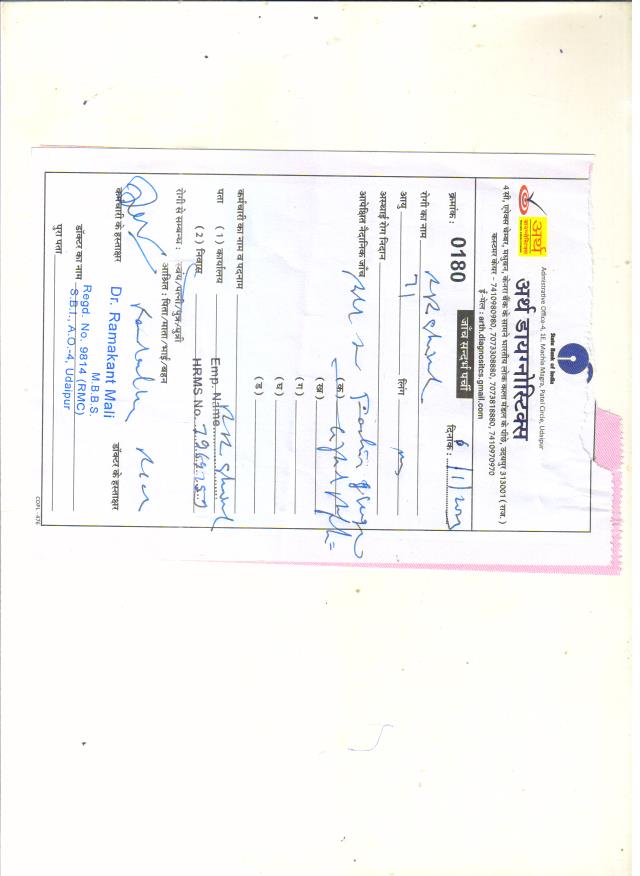 State Bank of India
Admistrative Office-4, 1E, Machla Magra, Patel Circle, Udaipur
अर्थ
डायग्नोस्टिक्स
अर्थ डायग्नोस्टिक्स
4 सी, एपेक्स चेम्बर, मधुबन, केनरा बैंक के सामने भारतीय लोक कला मंडल के पीछे, उदयपुर 313001 ( राज. )
कस्टमर केयर - 7410980980, 7073308880, 7073818880, 7410970970
ई-मेल : arth.diagnositcs.gmail.com
जाँच सन्दर्भ पर्ची
क्रमांक : 0180 दिनांक : 6/1/
रोगी का नाम
आयु 71 लिंग m
अस्थाई रोग निदान
आपेक्षित नैदानिक जाँच
( क )
( ख )
( ग )
( घ )
( ड )
कर्मचारी का नाम व पदनाम Emp. Name
पता ( 1 ) कार्यालय HRMS No.
( 2 ) निवास
रोगी से सम्बन्ध : स्वयं/पत्नी/पुत्र/पुत्री
आश्रित : पिता/माता/भाई/बहन
कर्मचारी के हस्ताक्षर डॉक्टर के हस्ताक्षर
Dr. Ramakant Mali
M.B.B.S.
Regd. No. 9814 (RMC)
S.B.I., A.O.-4, Udaipur
डॉक्टर का नाम
पुरा पता
COPL-476